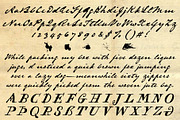 Aa Bb Cc Dd Ee Ff Gg Hh Ii Jj Kk Ll Mm
Nn Oo Pp Qq Rr Ss Tt Uu Vv Ww Xx Yy Zz
1234567890$¢£% ()#!
While packing my box with five dozen liquor
jugs, I noticed a quick brown fox jumping
over a lazy dog—meanwhile sixty zippers
were quickly picked from the woven jute bag.
A B C D E F G H I J K L M N O
P Q R S T U V W X Y Z